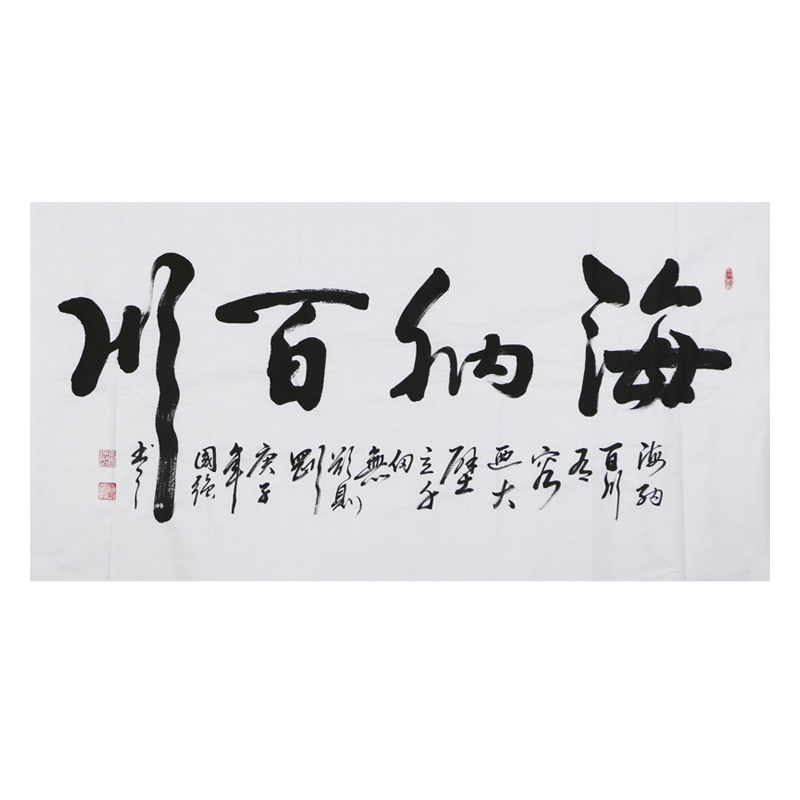 海納百川
海納百川有容迺大壁立千仞無欲則剛庚子年國強書